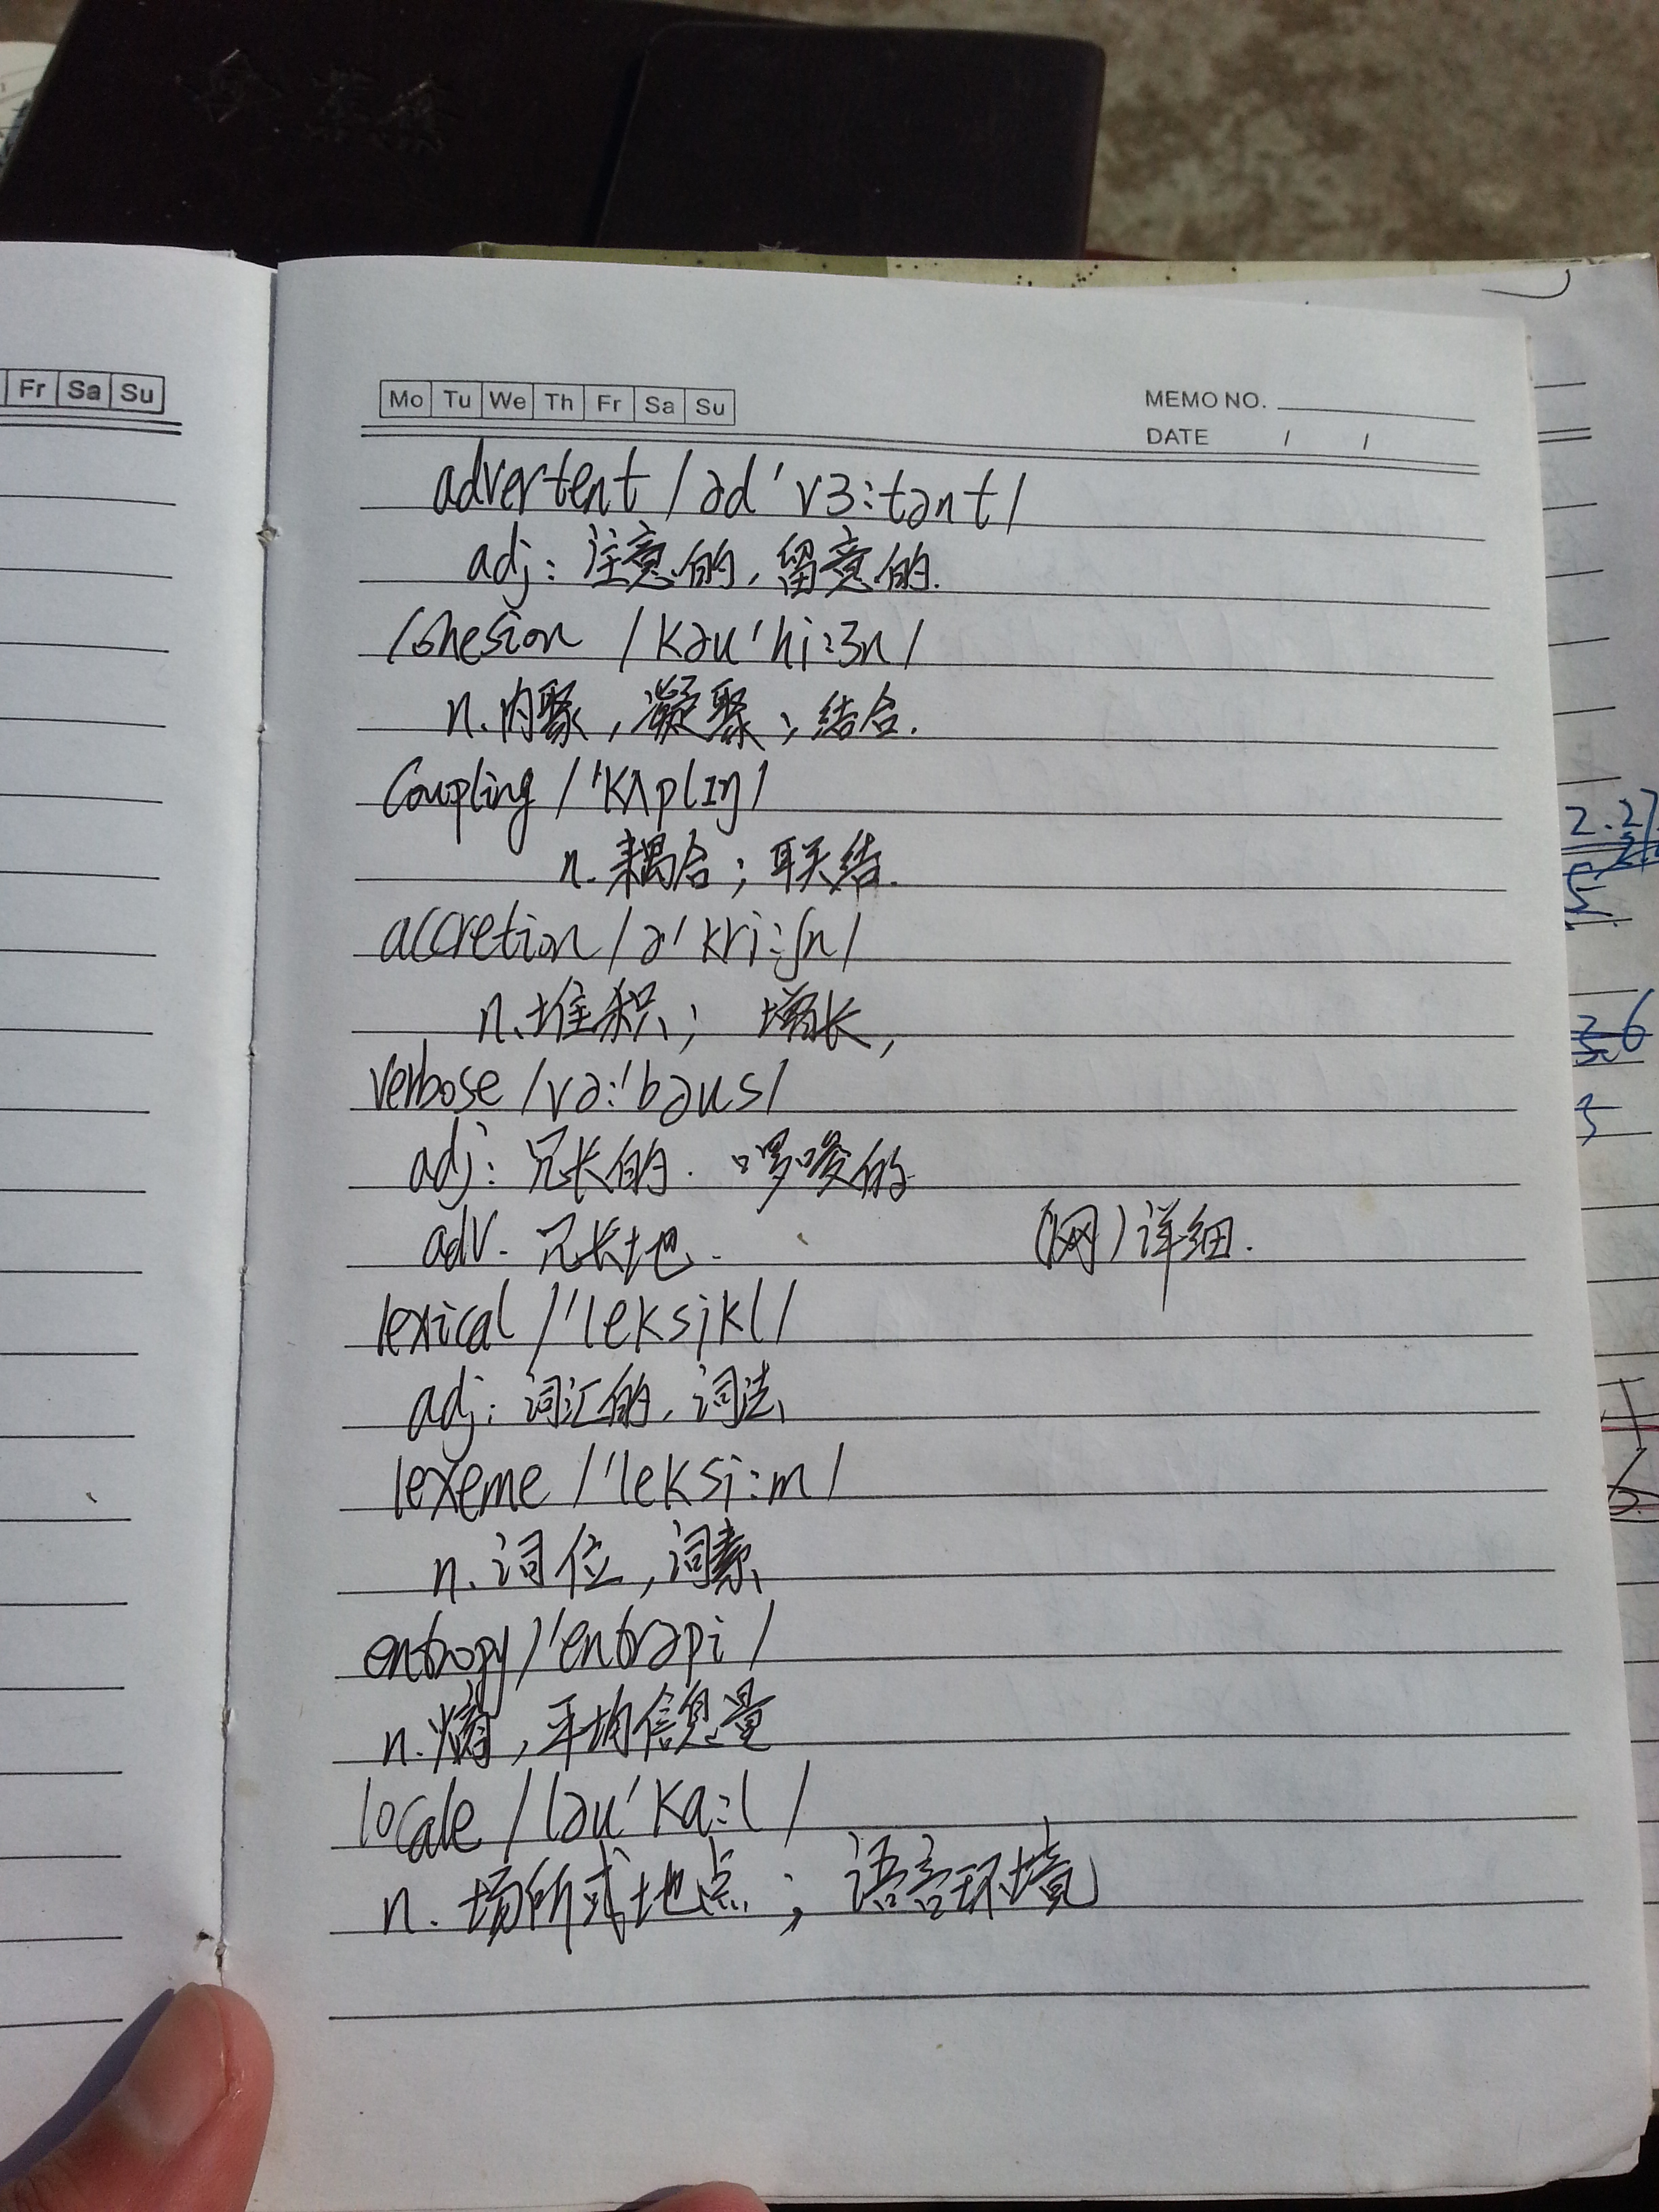 Fr Sa Su
Mo Tu We Th Fr Sa Su
MEMO NO.
DATE / /
advertent /əd'vɜ:tənt/
adj: 注意的, 留意的.
Cohesion /kəu'hi:ʒn/
n. 内聚, 凝聚; 结合.
Coupling /'kʌplɪŋ/
n. 耦合; 联结.
accretion /ə'kri:ʃn/
n. 堆积; 增长,
verbose /və:'bəus/
adj: 冗长的. 啰唆的
adv. 冗长地.
(网) 详细.
lexical /'leksikl/
adj: 词汇的, 词法
lexeme /'leksi:m/
n. 词位, 词素
entropy /'entrəpi/
n. 熵, 平均信息量
locale /ləu'ka:l/
n. 场所或地点; 语言环境
2.27
5
6